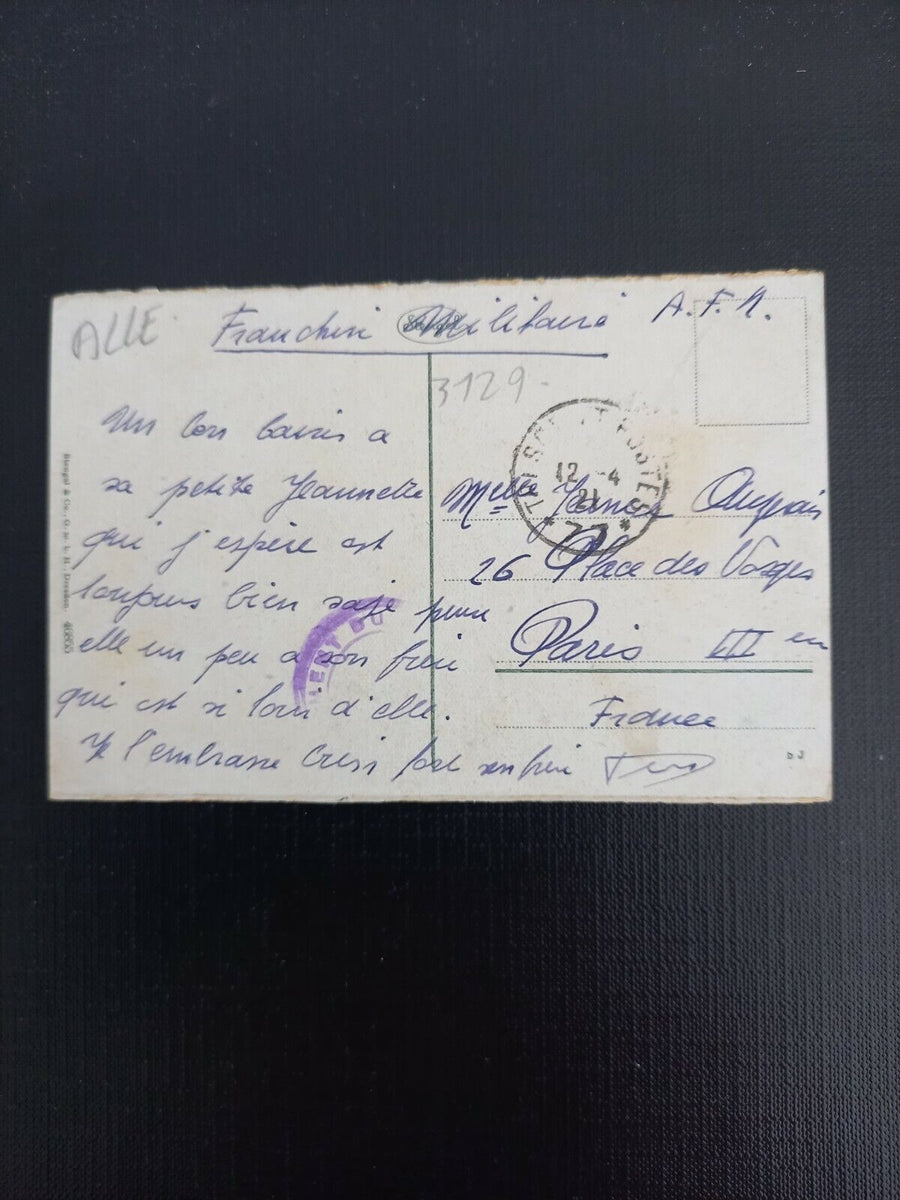 ALLE.
Franchise Militaire
A.F.N.
3129-
Un bon baiser a
sa petite Jeannette
qui j'espère est
toujours bien sage pense
elle un peu a son frère
qui est si loin d'elle.
Je l'embrasse bien fort son frère
TRÉSOR ET POSTES
12 -4
21
* 77 *
Melle
26 Place des Vosges
Paris III em
France
Stengel & Co., G. m. b. H., Dresden. 40855